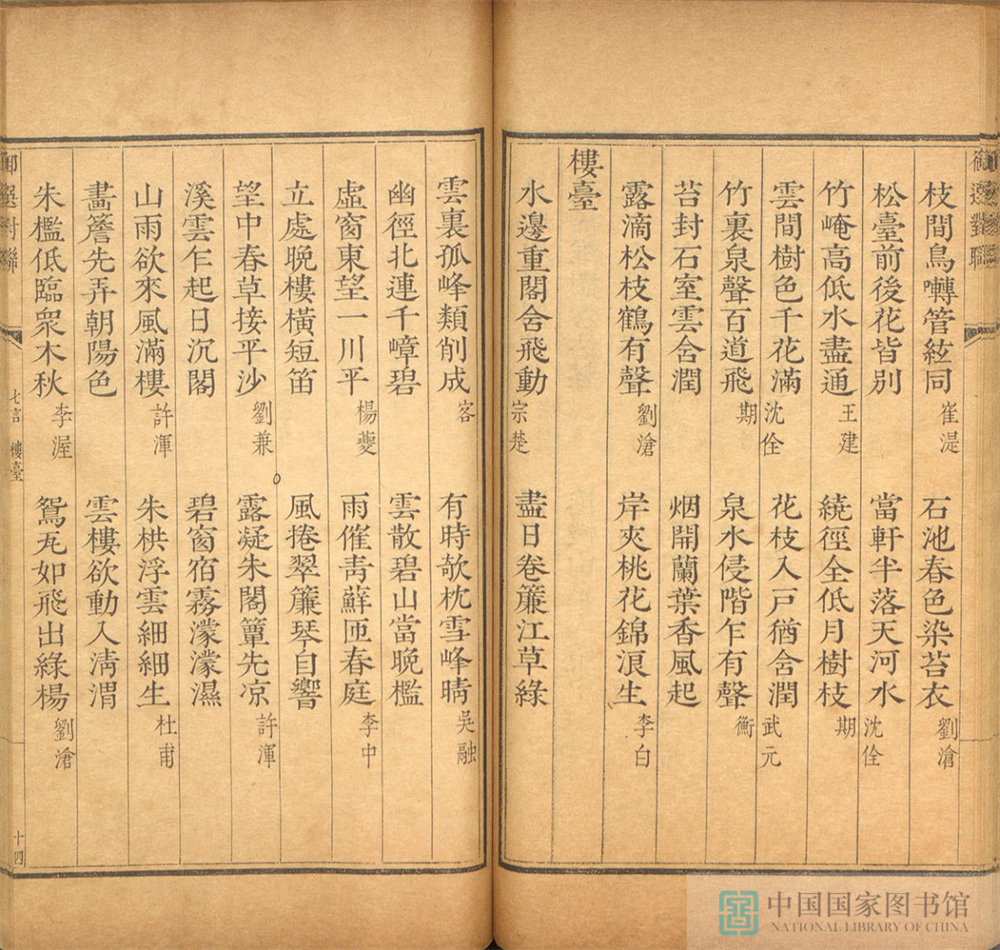 御選對聯
枝間鳥囀管絃同 崔湜 石池春色染苔衣 劉滄
松臺前後花皆別 當軒半落天河水 沈佺
竹崦高低水盡通 王建 繞徑全低月樹枝 期
雲間樹色千花滿 沈佺 花枝入戶猶含潤 武元
竹裏泉聲百道飛 期 泉水侵階乍有聲 衡
苔封石室雲含潤 烟開蘭葉香風起
露滴松枝鶴有聲 劉滄 岸夾桃花錦浪生 李白
樓臺
水邊重閣含飛動 宗楚 盡日卷簾江草綠
雲裏孤峰類削成 客 有時欹枕雪峰晴 吳融
幽徑北連千嶂碧 雲散碧山當晚檻
虛窗東望一川平 楊夔 雨催青蘚匝春庭 李中
立處晚樓橫短笛 風捲翠簾琴自響
望中春草接平沙 劉兼 露凝朱閣簟先凉 許渾
溪雲乍起日沉閣 碧窗宿霧濛濛濕
山雨欲來風滿樓 許渾 朱栱浮雲細細生 杜甫
畫簷先弄朝陽色 雲樓欲動入清渭
朱檻低臨衆木秋 李渥 鴛瓦如飛出綠楊 劉滄
御選對聯 七言 樓臺 十四
中国国家图书馆
NATIONAL LIBRARY OF CHINA